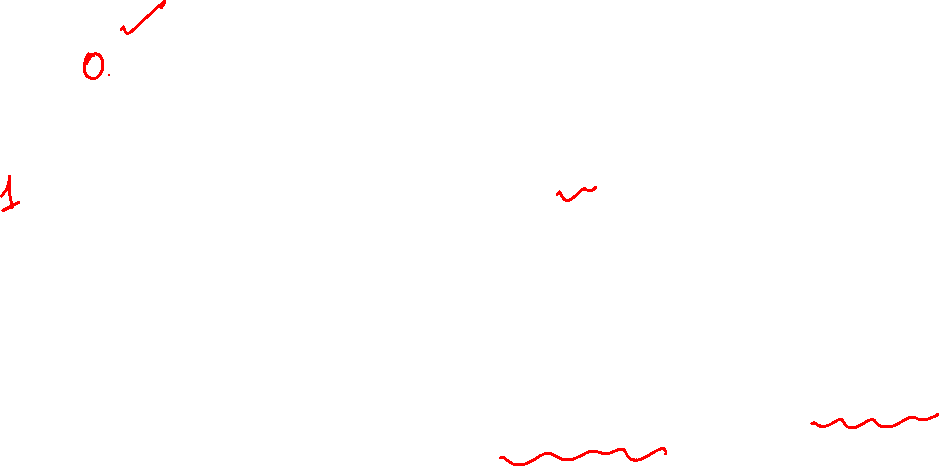 0.
1